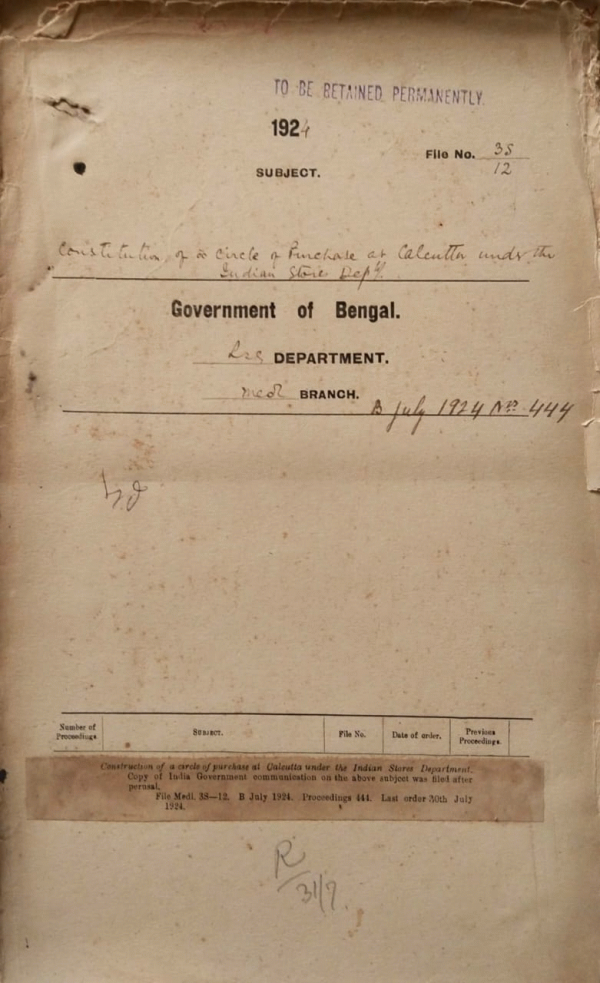 TO BE RETAINED PERMANENTLY
1924
File No. 3S
12
SUBJECT.
Constitution of a Circle of Purchase at Calcutta under the
Indian Stores Dept.
Government of Bengal.
LSG DEPARTMENT.
Medl BRANCH.
B July 1924 Nos 444
Number of Proceedings.
SUBJECT.
File No.
Date of order.
Previous Proceedings.
Construction of a circle of purchase at Calcutta under the Indian Stores Department.
Copy of India Government communication on the above subject was filed after
perusal.
File Medl. 3S—12. B July 1924. Proceedings 444. Last order 30th July
1924.
R
31/7.